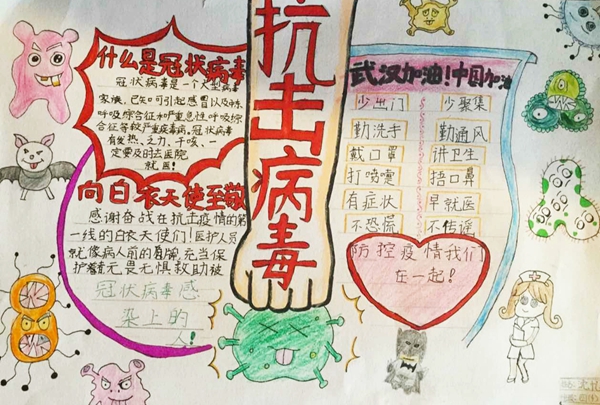 抗击病毒
什么是冠状病毒
冠状病毒是一个大型病毒
家族，已知可引起感冒以及中东
呼吸综合征和严重急性呼吸综
合征等较严重疾病，冠状病毒
有发热、乏力、干咳、一
定要及时去医院
就医！
向白衣天使至敬
感谢奋战在抗击疫情的第
一线的白衣天使们！医护人员
就像病人前的盾牌，充当保
护着无畏无惧救助被
冠状病毒感
染上的
人！
武汉加油！中国加油
少出门 少聚集
勤洗手 勤通风
戴口罩 讲卫生
打喷嚏 捂口鼻
有症状 早就医
不恐慌 不传谣
防控疫情我们
在一起！